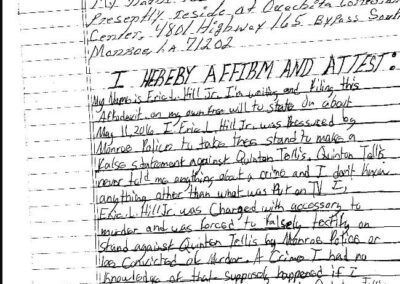 Presently reside at Ouachita
Center, 4801 Highway 165 Bypass South
Monroe, LA 71202
I HEREBY AFFIRM AND ATTEST:
My Name is Eric L. Hill Jr. I'm writing and filing this
Affidavit on my own free will to state on about
May 11, 2016 I Eric L. Hill Jr. was Pressured by
Monroe Police to take thee stand to make a
false statement against Quinton Tellis. Quinton Tellis
never told me anything about a crime and I don't know
anything other than what was Put on TV I,
Eric L. Hill Jr was Charged with accessory to
murder and was forced to falsely testify on
stand against Quinton Tellis by Monroe Police or
be Convicted of Murder. A Crime I had no
Knowledge of that supposely happened if I